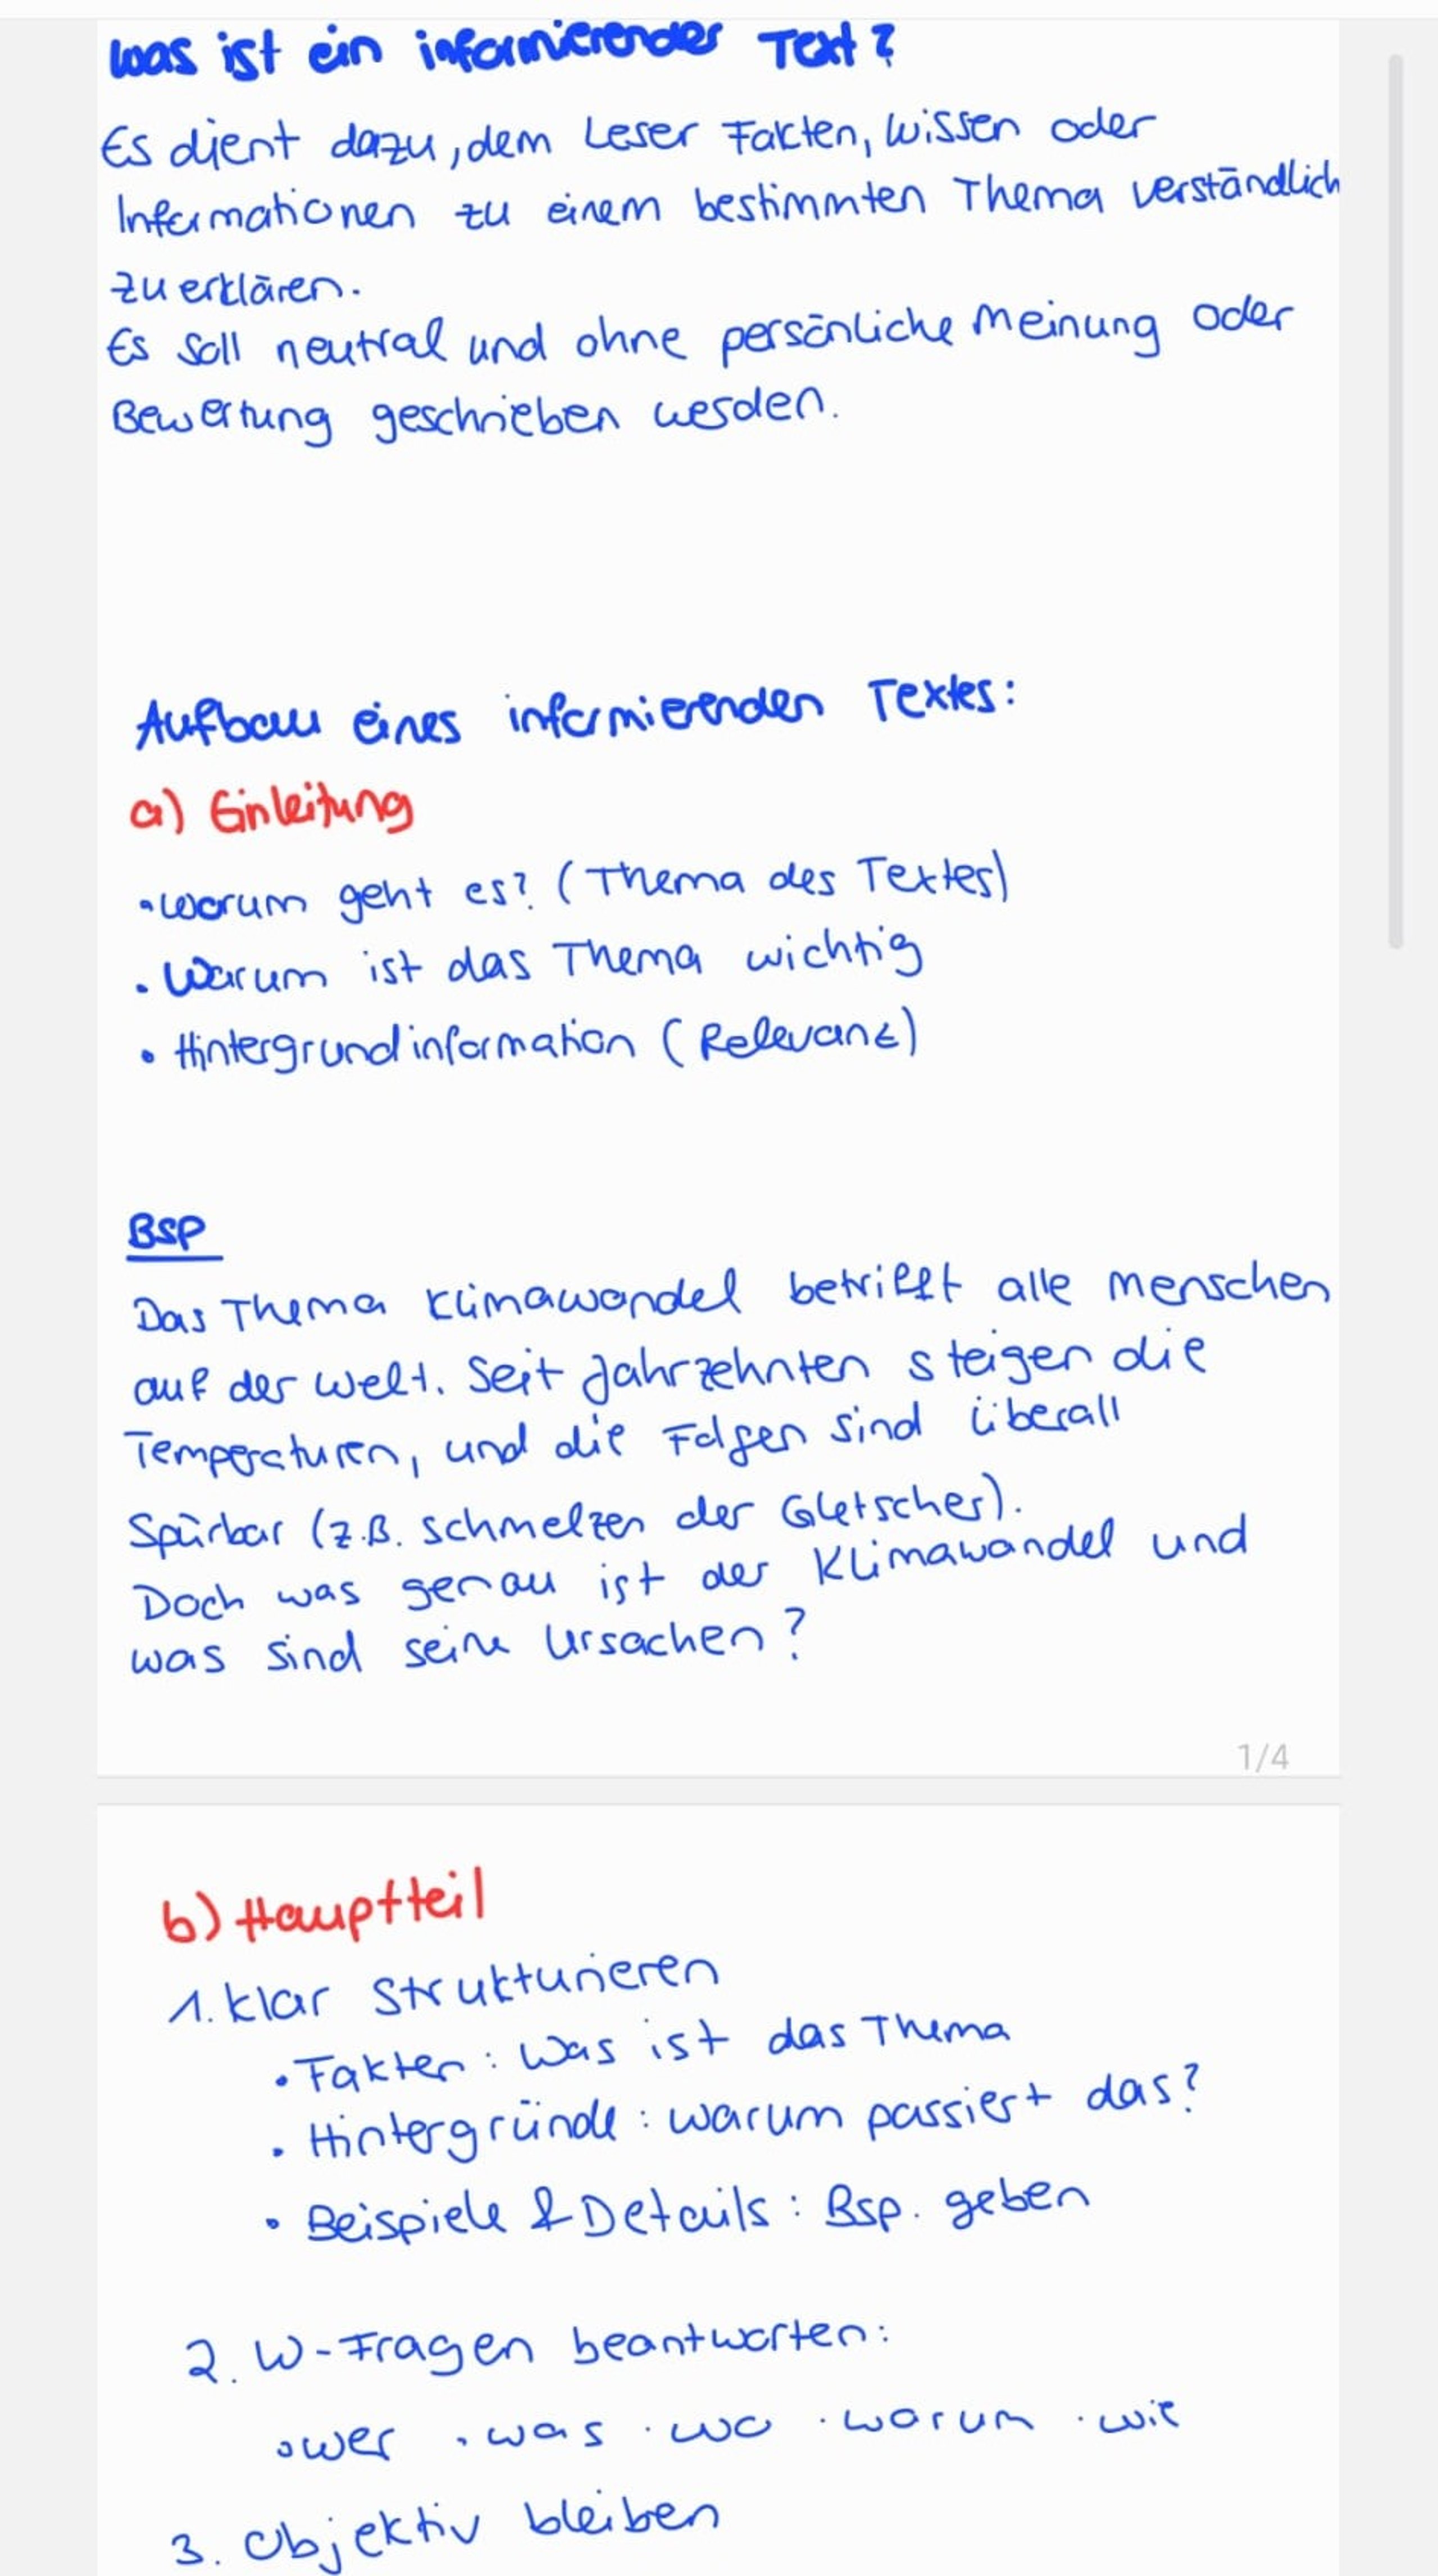 Was ist ein informierender Text?
Es dient dazu, dem Leser Fakten, Wissen oder
Informationen zu einem bestimmten Thema verständlich
zu erklären.
Es soll neutral und ohne persönliche Meinung oder
Bewertung geschrieben werden.
Aufbau eines informierenden Textes:
a) Einleitung
• worum geht es? (Thema des Textes)
• Warum ist das Thema wichtig
• Hintergrundinformation (Relevanz)
BSP
Das Thema Klimawandel betrifft alle Menschen
auf der Welt. Seit Jahrzehnten steigen die
Temperaturen, und die Folgen sind überall
Spürbar (z.B. schmelzen der Gletscher).
Doch was genau ist der Klimawandel und
was sind seine Ursachen?
1/4
b) Hauptteil
1. Klar strukturieren
• Fakten: Was ist das Thema
• Hintergründe: warum passiert das?
• Beispiele & Details: Bsp. geben
2. W-Fragen beantworten:
• wer • was • wo • warum • wie
3. Objektiv bleiben